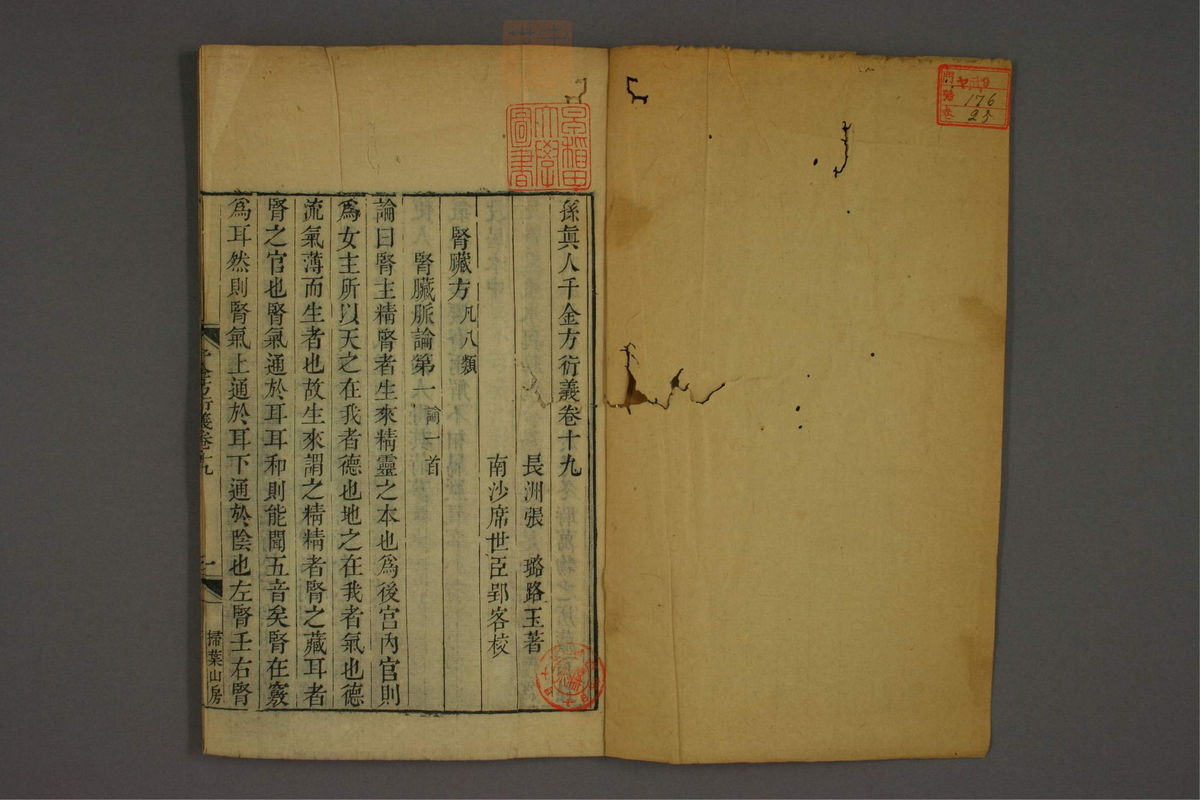 孫眞人千金方衍義卷十九
長洲張 璐路玉著
南沙席世臣郢客校
腎臟方凡八類
腎臟脈論第一 論一首
論曰腎主精腎者生來精靈之本也爲後宫內官則
爲女主所以天之在我者德也地之在我者氣也德
流氣薄而生者也故生來謂之精精者腎之藏耳者
腎之官也腎氣通於耳耳和則能聞五音矣腎在竅
爲耳然則腎氣上通於耳下通於陰也左腎壬右腎
掃葉山房
早稻田大學圖書
176
23